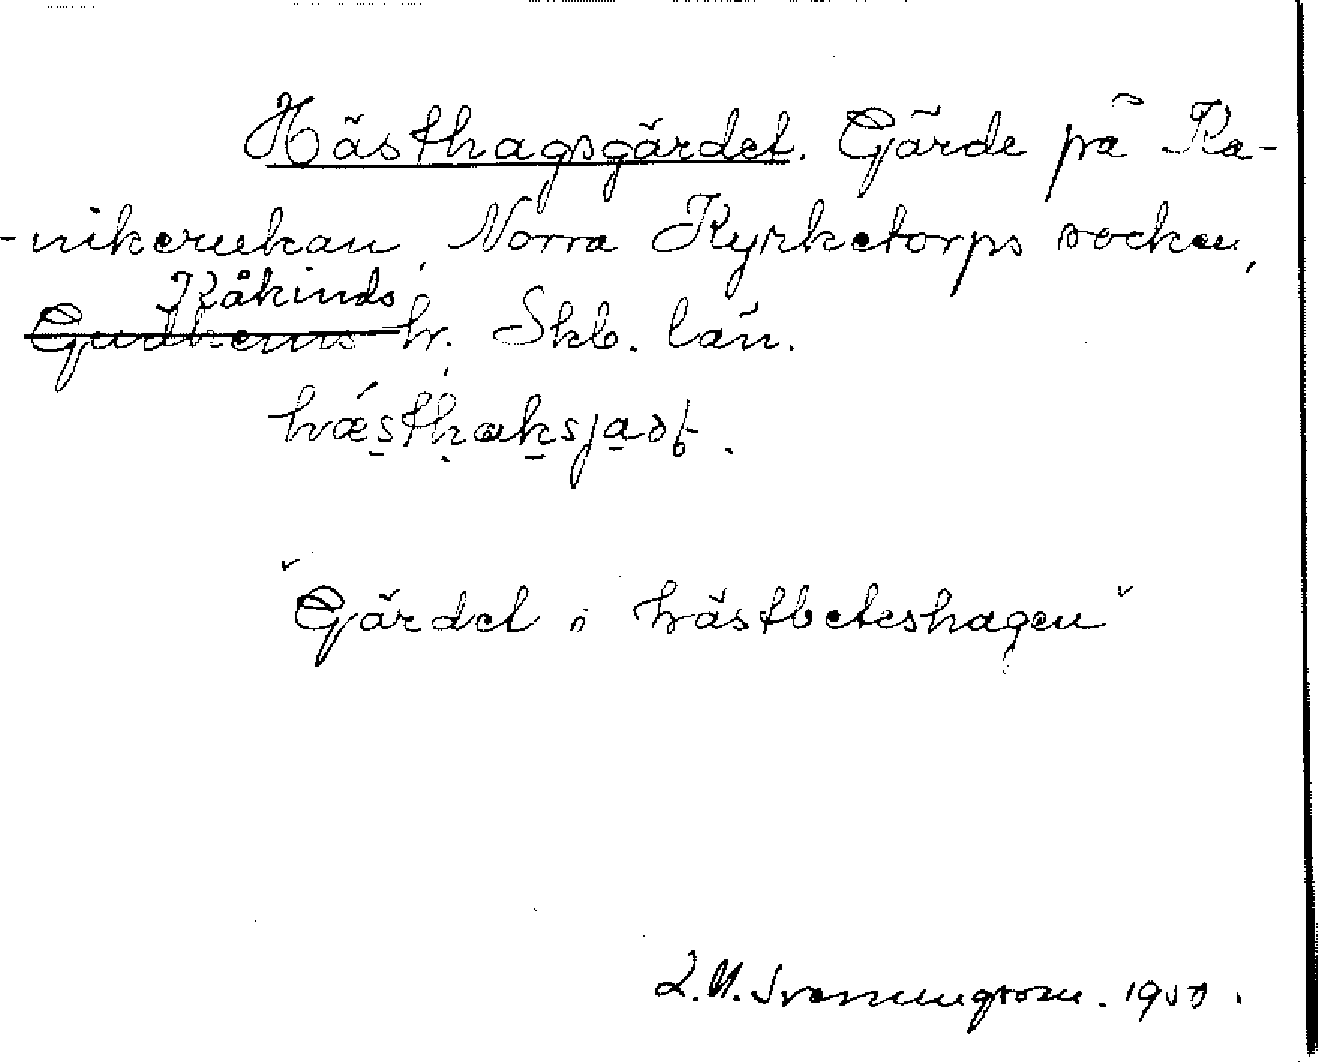 Hästhagsgärdet. Gärde på Ka-
-nikerukan, Norra Kyrketorps socken,
Kåkinds
Gudhems hr. Skb. län.
hǽsthaksjaət.
"Gärdet i hästbeteshagen"
L.M. 1950.